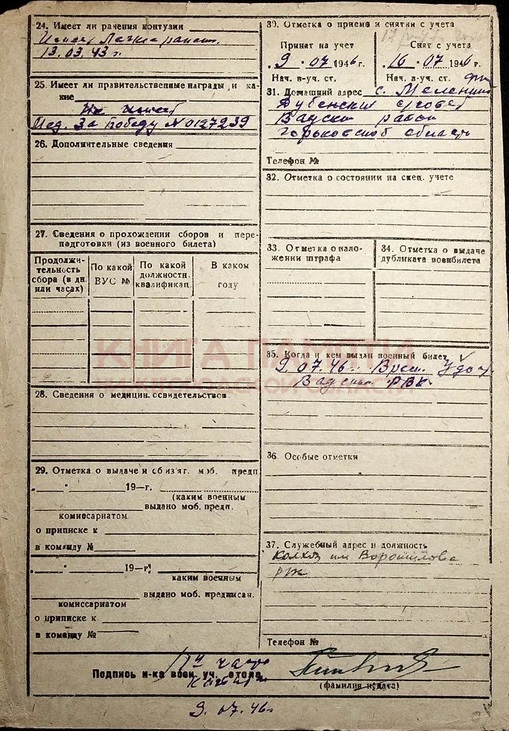 24. Имеет ли ранения контузии
13.03.43 г.
25. Имеет ли правительственные награды и какие
Не имеет
Мед. За победу № 0127239
26. Дополнительные сведения
27. Сведения о прохождении сборов и переподготовки (из военного билета)
Продолжительность сбора (в дн. или часах)
По какой ВУС №
По какой должностн. квалификац.
В каком году
28. Сведения о медицин. освидетельствов
29. Отметка о выдаче и об из'яг. моб. предп.
19—г.
(каким военным
выдано моб. предп.
комиссариатом
о приписке к
в команду №
19—г.
каким военным
выдано моб. предписан.
комиссариатом
о приписке к
в команду №
30. Отметка о приеме и снятии с учета
Принят на учет
9 . 07 1946 г.
Нач. в-уч. ст.
Снят с учета
16 . 07 1946 г.
Нач. в-уч. ст.
31. Домашний адрес с.
Дубенский с/совет
Вадский район
Горьковской области
Телефон №
32. Отметка о состоянии на спец. учете
33. Отметка о наложении штрафа
34. Отметка о выдаче дубликата военбилета
35. Когда и кем выдан военный билет
9.07.46.
Вадским РВК
36. Особые отметки
37. Служебный адрес и должность
Колхоз им Ворошилова
Телефон №
Подпись н-ка воен. уч. стола
(фамилия и дата)
9.07.46г.
КНИГА ПАМЯТИ
НИЖЕГОРОДСКОЙ ОБЛАСТИ